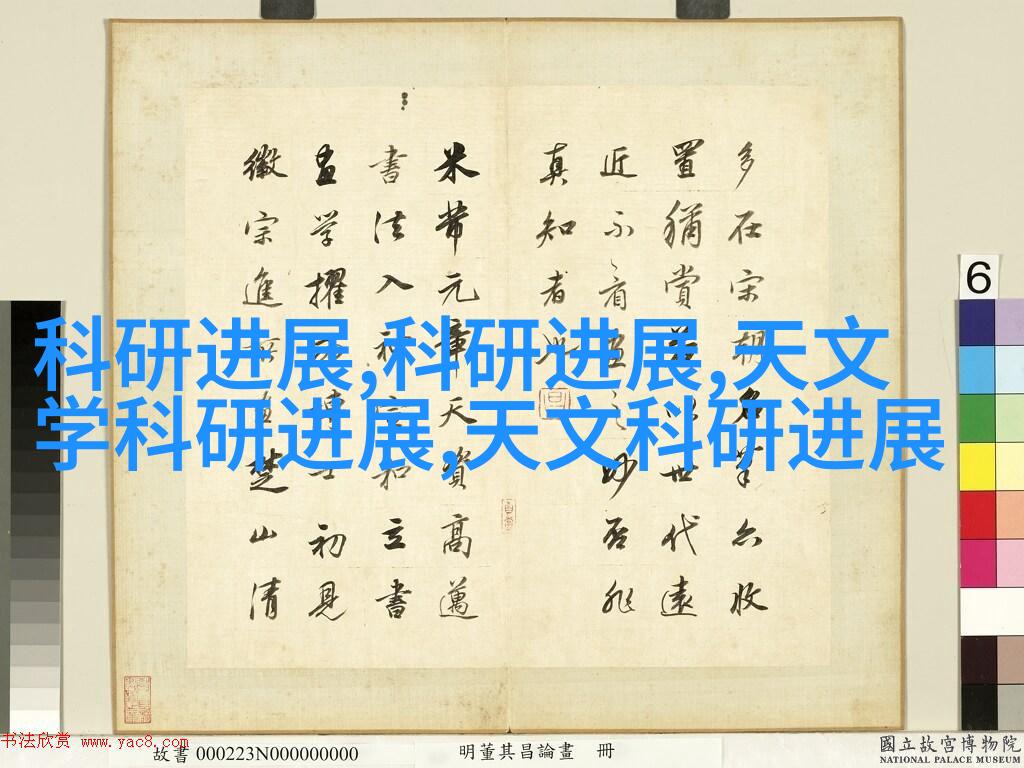 科研进展,科研进展,天文
学科研进展,天文科研进展
多在宋朝名筆亦收
置猶賞世代遠
近不看画之妙否非
真知者
米芾元章天資高邁
書法入神宣和立書
画学擢為博士初見
徽宗進所画楚山清
6
书法欣赏 www.yac8.com
故書 000223N000000000
明董其昌論畫 冊
國立故宮博物院
NATIONAL PALACE MUSEUM